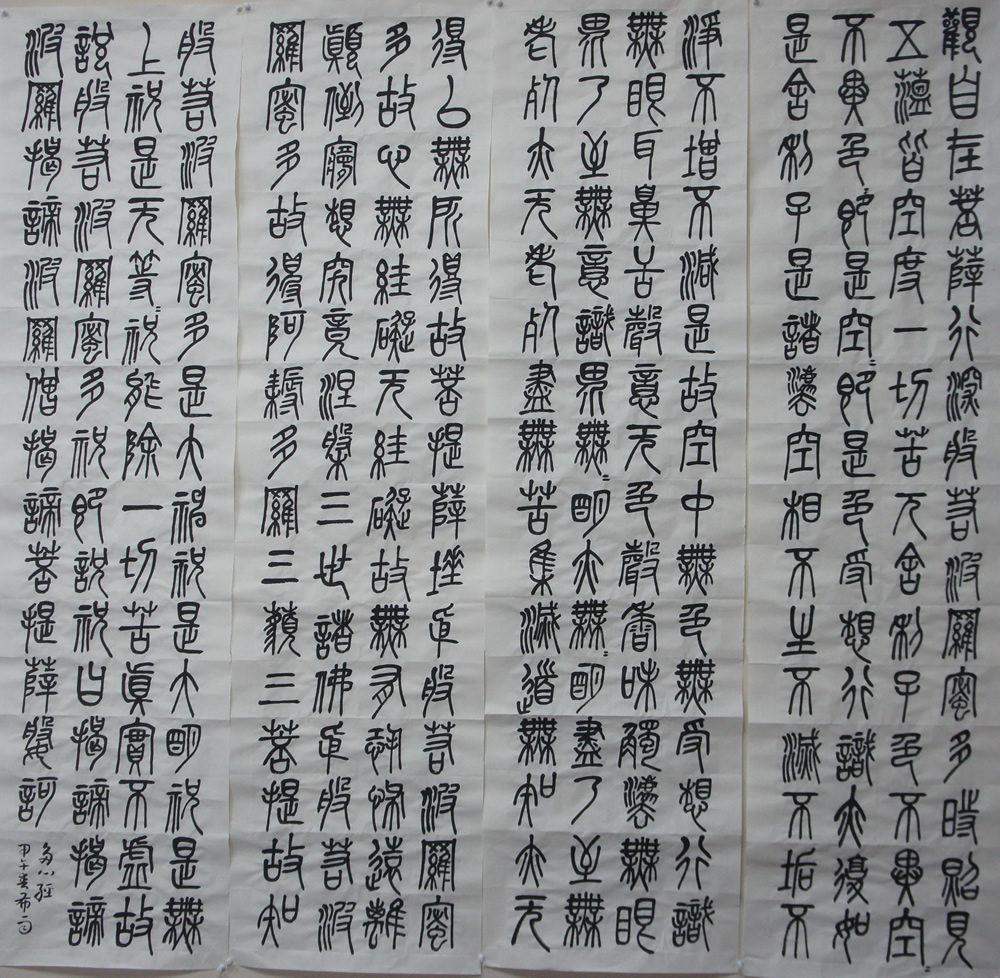 觀自在菩薩行深般若波羅蜜多時照見
五蘊皆空度一切苦厄舍利子色不異空〻
不異色〻即是空〻即是色受想行識亦復如
是舍利子是諸法空相不生不滅不垢不
淨不增不減是故空中無色無受想行識
無眼耳鼻舌聲意无色聲香味觸法無眼
界乃至無意識界無〻明亦無〻明盡乃至無
老死亦无老死盡無苦集滅道無知亦无
得以無所得故菩提薩埵依般若波羅蜜
多故心無絓礙无絓礙故無有恐怖遠離
顛倒夢想究竟涅槃三世諸佛依般若波
羅蜜多故得阿耨多羅三藐三菩提故知
般若波羅蜜多是大神祝是大明祝是無
上祝是无等〻祝能除一切苦真實不虛故
說般若波羅蜜多祝即說祝曰揭諦揭諦
波羅揭諦波羅僧揭諦菩提薩婆訶
多心經
甲午春